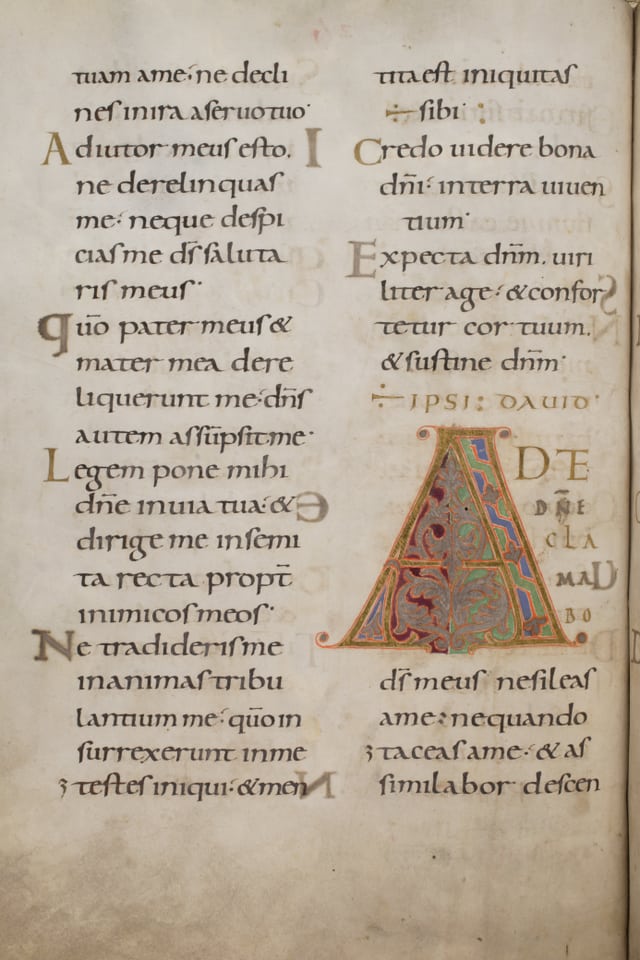 tuam ame; ne decli
nes inira aseruotuo·
Adiutor meus esto.
ne derelinquas
me; neque despi
cias me ds̄ saluta
ris meus·
Qūo pater meus &
mater mea dere
liquerunt me; dn̄s
autem assūpsit me·
Legem pone mihi
dn̄e inuia tua; &
dirige me insemi
ta recta propt̄
inimicos meos·
Ne tradideris me
inanimas tribu
lantium me; qūo in
surrexerunt inme
testes iniqui; & men
tita est iniquitas
÷ sibi :
Credo uidere bona
dn̄i; interra uiuen
tium·
Expecta dn̄m. uiri
liter age; & confor
tetur cor tuum.
& sustine dn̄m·
÷ IPSI: DAUID·
AD TE
DN̄E
CLA
MA
BO
ds̄ meus ne sileas
ame; nequando
taceas ame; & as
similabor descen